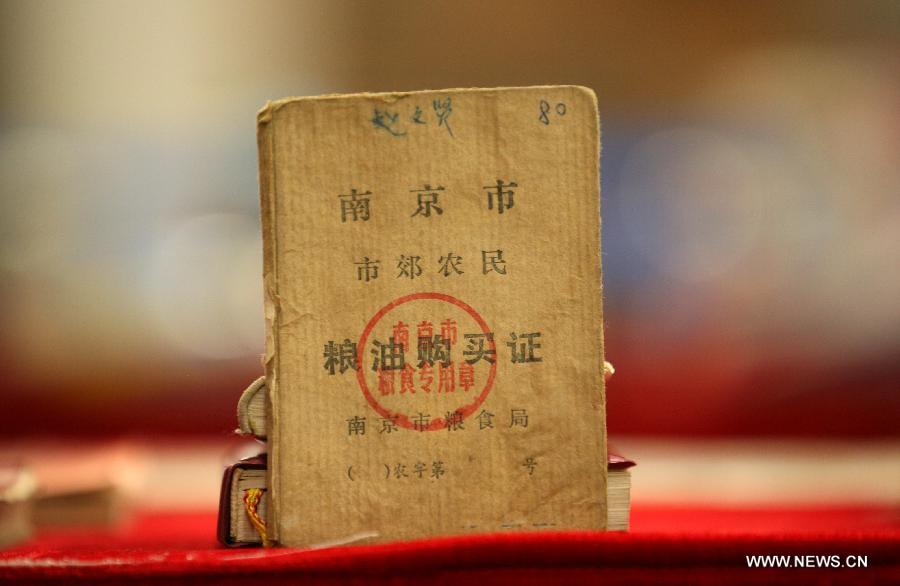 赵文贤 80
南京市
市郊农民
粮油购买证
南京市
粮食专用章
南京市粮食局
( )农字第 号
WWW.NEWS.CN